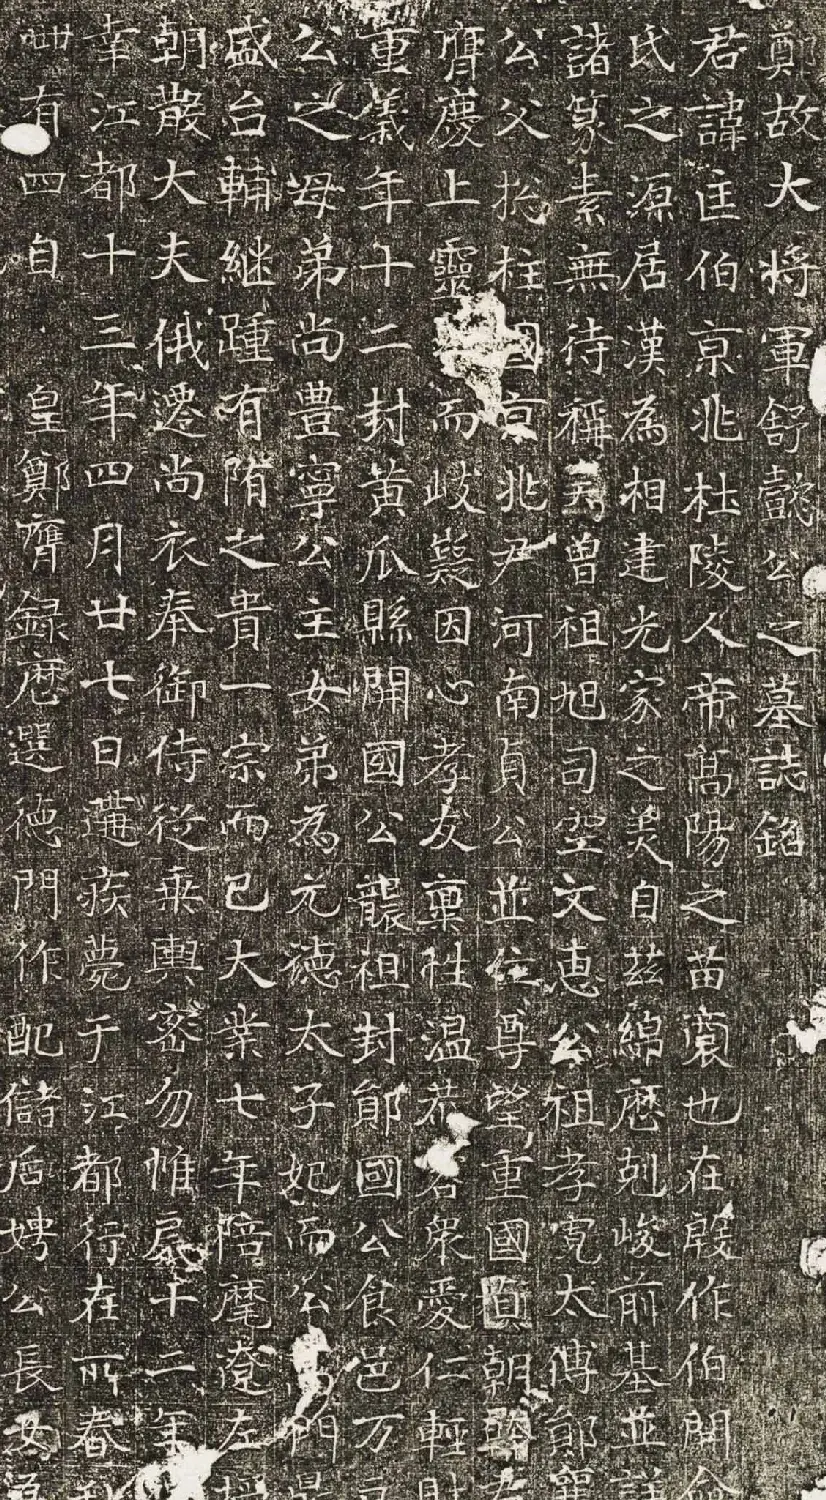 鄭故大將軍舒懿公之墓誌銘
君諱匡伯京兆杜陵人帝髙陽之苗裔也在殷作伯開
氏之源居漢為相建光家之美自茲綿歷剋峻前基並詳
諸篆素無待稱言曽祖旭司空文惠公祖孝寬太傅鄖
公父揔柱國京兆尹河南貞公並位尊望重國貞朝
膺慶上靈而岐嶷因心孝友稟性温恭容衆愛仁輕財
重義年十二封黄瓜縣開國公襲祖封鄖國公食邑万
公之母弟尚豊寧公主女弟為元德太子妃而公門
盛台輔継踵有隋之貴一宗而已大業七年陪麾遼左授
朝散大夫俄遷尚衣奉御侍從乗輿密勿惟扆十二年
幸江都十三年四月廿七日遘疾薨于江都行在所春秋
卌有四自皇鄭膺録歷選德門作配儲后娉公長女